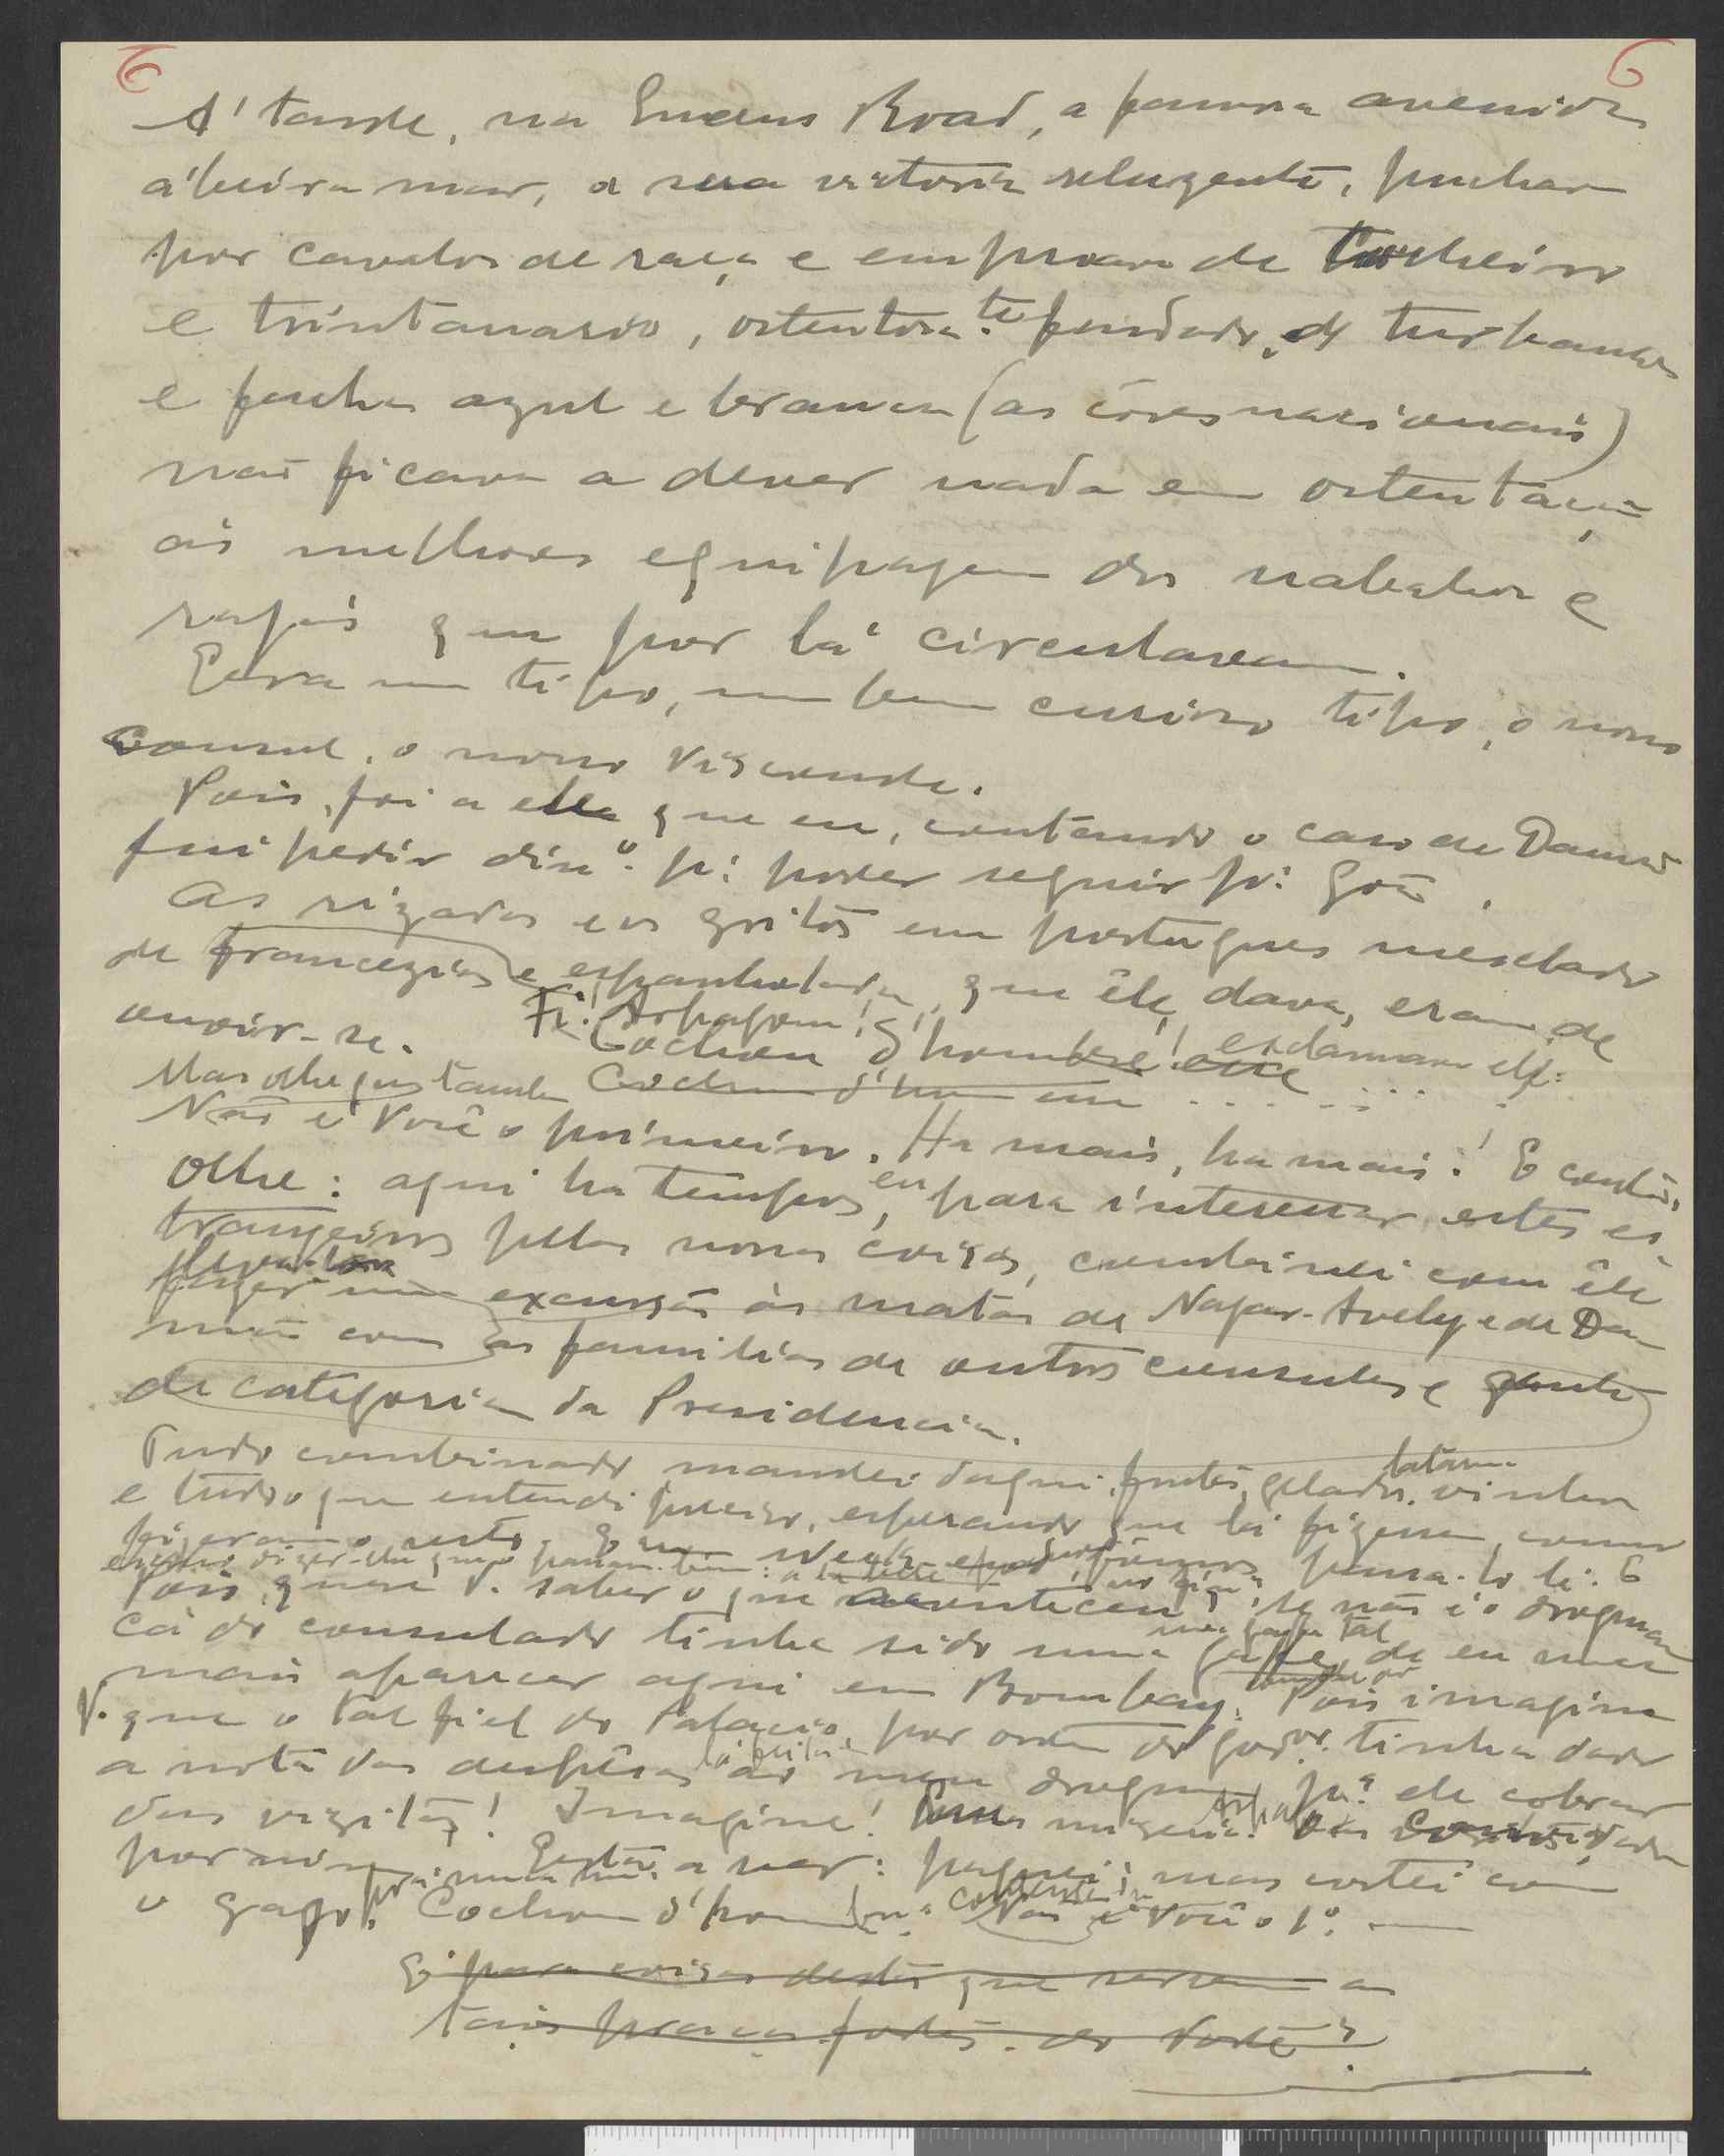 6 6
A' tarde, na Queens Road, a famosa avenida
á beira mar, a sua victoria reluzente, puchada
por cavalos de raça e emproava de cocheiro
e trintanario, ostentosa.te fardados, de turbantes
e faicha azul e branca (as côres nacionais)
não ficava a dever nada em ostentação
ás melhores equipagens dos nababos e
rajás que por lá circulavam.
Era um tipo, um bem curioso tipo, o nosso
consul, o nosso Visconde.
Pois, foi a elle que eu, contando o caso de Damão
fui pedir din.º p.ª poder seguir p.ª Goa.
As rizadas e os gritos em portugues mesclado
de francezias e espanholadas, que êle dava, eram de
ouvir-se. Fi! Arpagon! Cochon d'hombre! exclamava elle:
Mas olhe que tambem Cochon d'hom
Não é Você o primeiro. Ha mais, ha mais! E contou,
Olhe: aqui ha tempos, eu para interessar estes es-
trangeiros pelas nossas coisas, combinei com êle
fazer uma excursão ás matas de Nagar-Avely e de Da-
mão com as familias de outros consules e gente
de categoria da Presidencia.
Tudo combinado mandei daqui frutas, gelados, vinhos
e tudo o que entendi preciso, esperando que lá fizessem, como
fizeram o resto, passa-lo lá. E
Pois, quere V. saber o que aconteceu, se não é o drogman
cá do consulado tinha sido uma gaffe de eu nunca
mais aparecer aqui em Bombay. Pois imagine
V. que o tal fiel do Palacio, por ordem do gov.or tinha dado
a nota das despêsas lá feitas ao meu drogman p.ª ele cobrar
das vizitas! Imagine! miseria!
por mim. Está a ver: paguei; mas cortei com
o gajo p.ª nunca mais. Cochon d'hom Não é Você o 1º.
E' para coisas destas que servem as
tais praças fortes do Norte?